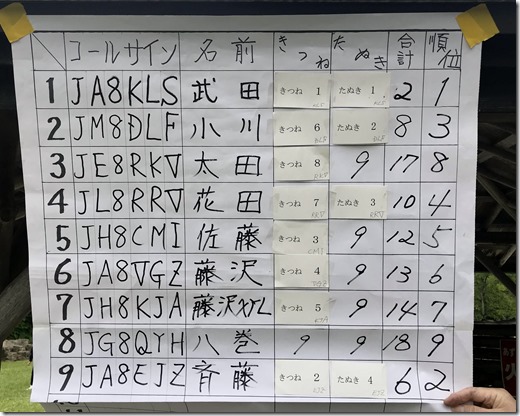 コールサイン 名前 きつね たぬき 合計 順位
1 JA8KLS 武田 きつね 1 たぬき 1 2 1
2 JM8DLF 小川 きつね 6 たぬき 2 8 3
3 JE8RKV 太田 きつね 8 9 17 8
4 JL8RRV 花田 きつね 7 たぬき 3 10 4
5 JH8CMI 佐藤 きつね 3 9 12 5
6 JA8VGZ 藤沢 きつね 4 9 13 6
7 JH8KJA 藤沢XYL きつね 5 9 14 7
8 JG8QYH 八巻 9 9 18 9
9 JA8EJZ 斉藤 きつね 2 たぬき 4 6 2